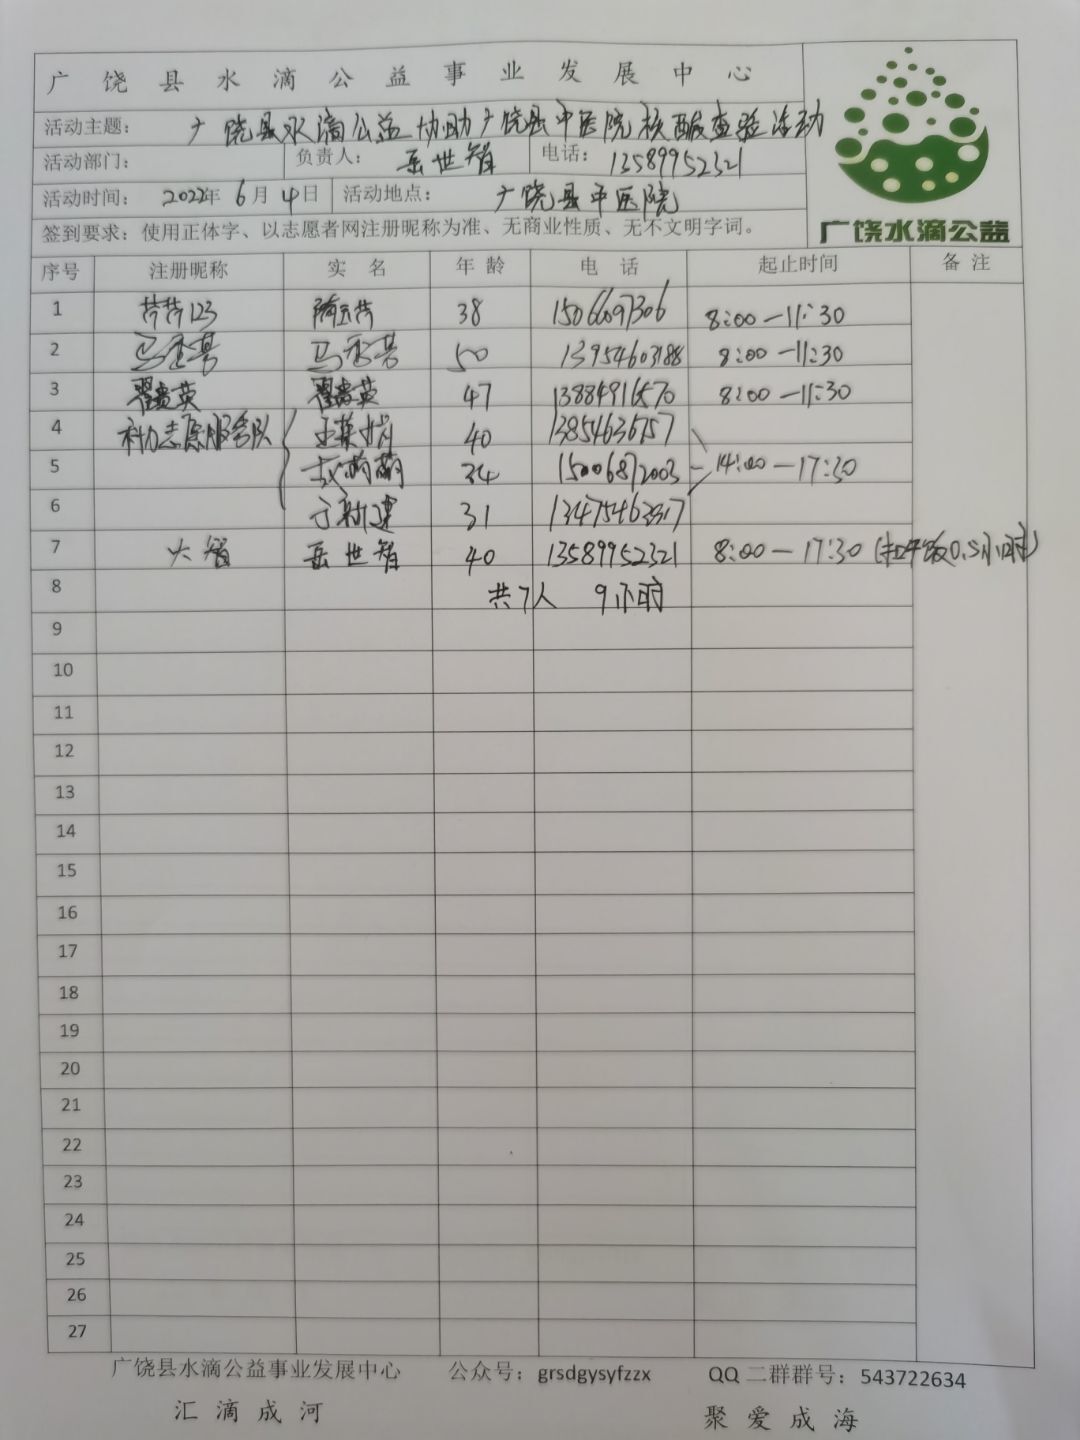 广饶县水滴公益事业发展中心
活动主题： 广饶县水滴公益协助广饶县中医院核酸查验活动
活动部门： 负责人： 岳世智 电话： 13589952321
活动时间： 2022年 6月 4日 活动地点： 广饶县中医院
签到要求：使用正体字、以志愿者网注册昵称为准、无商业性质、无不文明字词。
广饶水滴公益
序号 注册昵称 实名 年龄 电话 起止时间 备注
1 芳芳123 38 15066097306 8:00—11:30
2 50 13954603188 8:00—11:30
3 翟贵英 翟贵英 47 13884916570 8:00—11:30
4 志愿服务队 40 13854636757
5 34 15006872003 14:00—17:30
6 于新建 31 13475463317
7 大智 岳世智 40 13589952321 8:00—17:30(扣午饭0.5小时)
8 共7人 9小时
9
10
11
12
13
14
15
16
17
18
19
20
21
22
23
24
25
26
27
广饶县水滴公益事业发展中心 公众号：grsdgysyfzzx QQ二群群号：543722634
汇滴成河 聚爱成海